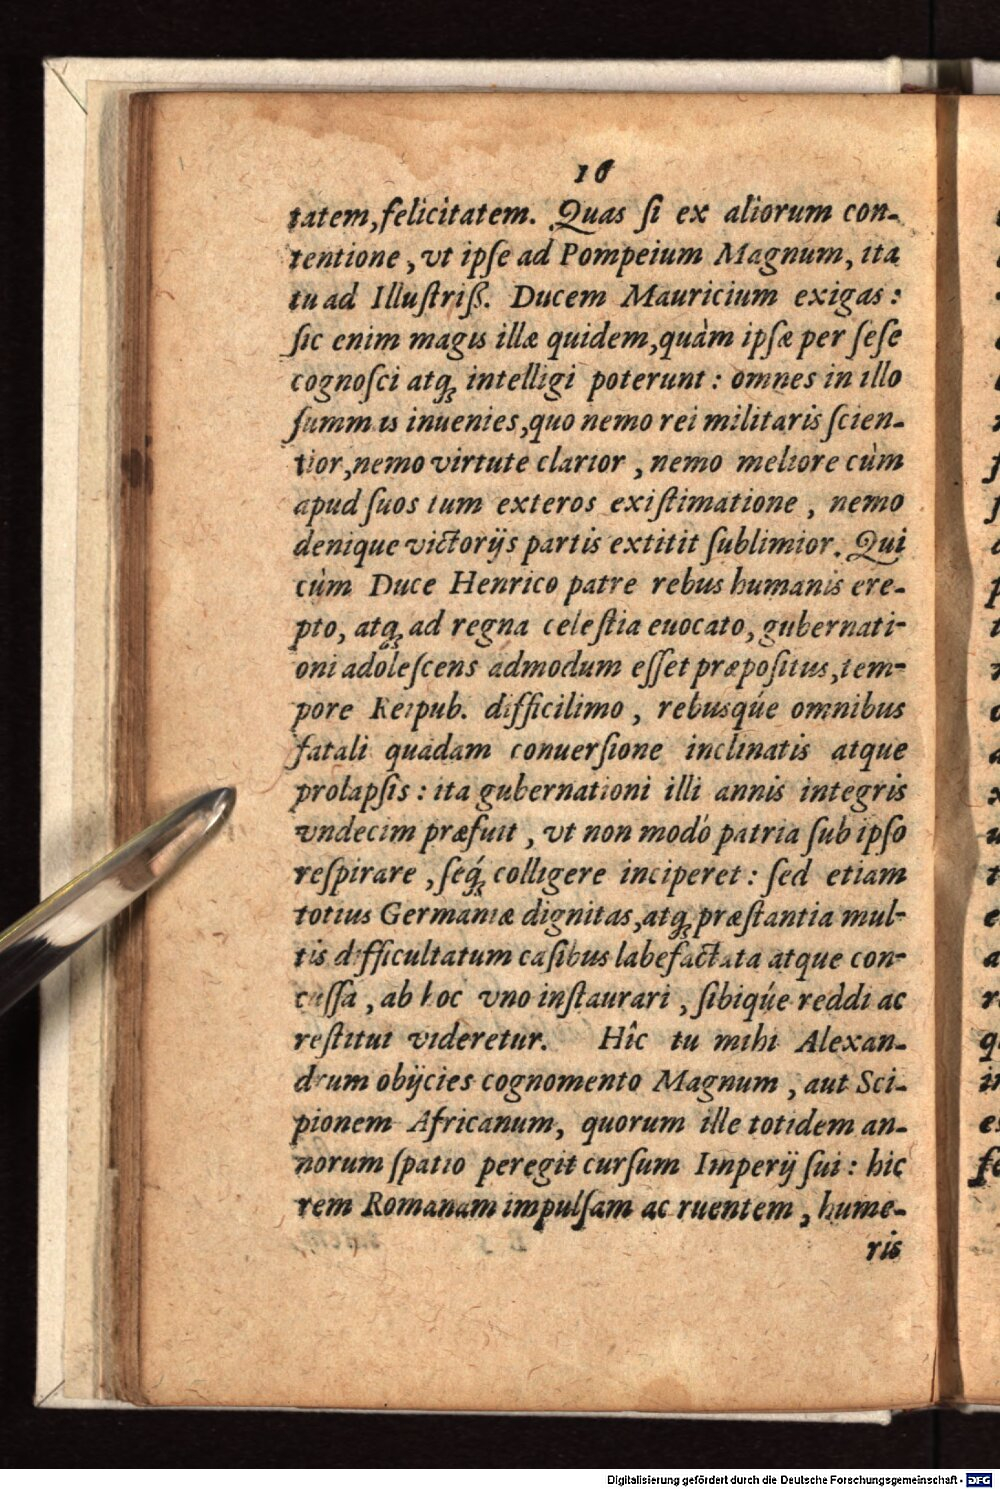 16
tatem, felicitatem. Quas ſi ex aliorum con-
tentione, vt ipſe ad Pompeium Magnum, ita
tu ad Illuſtriß. Ducem Mauricium exigas:
ſic enim magis illæ quidem, quàm ipſæ per ſeſe
cognoſci atq́ꝫ intelligi poterunt: omnes in illo
ſummas inuenies, quo nemo rei militaris ſcien-
tior, nemo virtute clarior, nemo meliore cùm
apud ſuos tum exteros exiſtimatione, nemo
denique victorijs partis extitit ſublimior. Qui
cùm Duce Henrico patre rebus humanis ere-
pto, atq́ꝫ ad regna celeſtia euocato, gubernati-
oni adóleſcens admodum eſſet præpoſitus, tem-
pore Reipub. difficilimo, rebusqúe omnibus
fatali quadam conuerſione inclinatis atque
prolapſis: ita gubernationi illi annis integris
vndecim præfuit, vt non modò patria ſub ipſo
reſpirare, ſeq́ꝫ colligere inciperet: ſed etiam
totius Germaniæ dignitas, atq́ꝫ præſtantia mul-
tis difficultatum caſibus labefactata atque con-
cuſſa, ab hoc vno inſtaurari, ſibiqúe reddi ac
reſtitui videretur. Hîc tu mihi Alexan-
drum obijcies cognomento Magnum, aut Sci-
pionem Africanum, quorum ille totidem an-
norum ſpatio peregit curſum Imperij ſui: hic
rem Romanam impulſam ac ruentem, hume-
ris
Digitalisierung gefördert durch die Deutsche Forschungsgemeinschaft - DFG